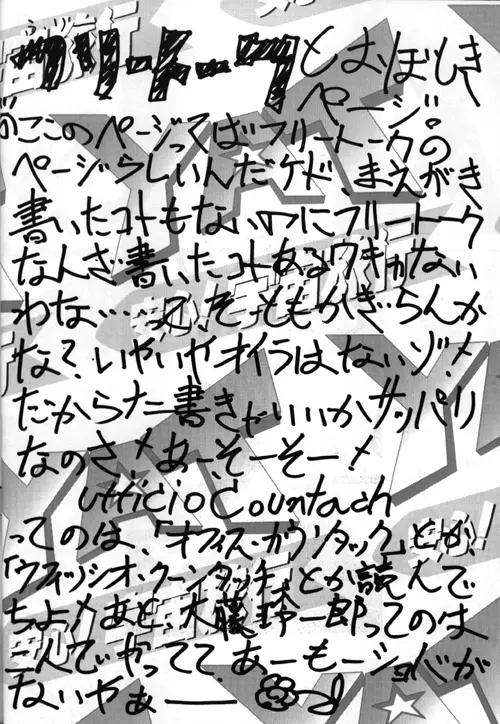 フリートークとおぼしき
ページ。
このページってばフリートークの
ページらしいんだケド、まえがき
書いたコトもないのにフリートーク
なんざ書いたコトあるワキャがない
わな…って、そーともかぎらんか
な?いやいやオイラはないゾ!
だからなに書きゃいいかサッパリ
なのさ!あ、そーそー!
Ufficio Countach
ってのは、「オフィス・カウンタック」とか
「ウフィッシオ・クーンタッチ」とか読んで
ちょ!あと、大藤玲一郎ってのは
二人でやってて、あーもーショバが
ないやぁ——